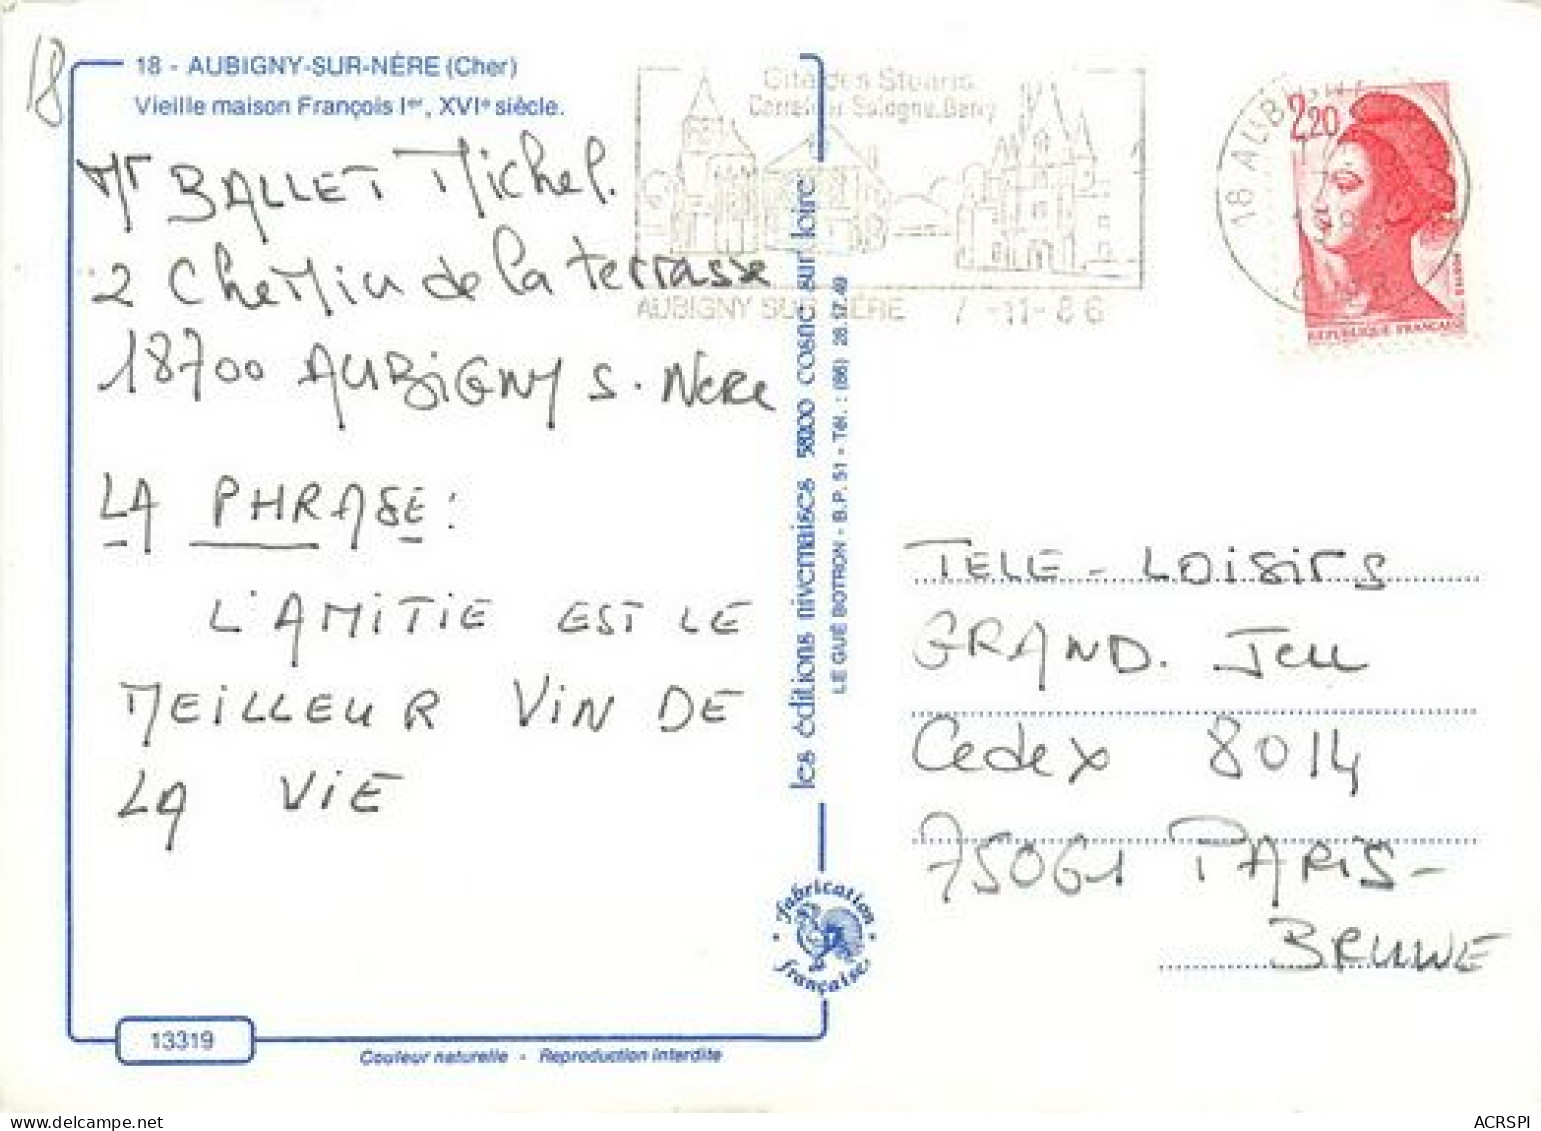 18
18 - AUBIGNY-SUR-NÈRE (Cher)
Vieille maison François Ier, XVIe siècle.
Mr BALLET Michel.
2 Chemin de la terrasse
18700 AUBIGNY S. NERE
LA PHRASE :
L'AMITIE EST LE
MEILLEUR VIN DE
LA VIE
13319
Couleur naturelle - Reproduction interdite
Cité des Stuarts
Carrefour Sologne.Berry
AUBIGNY SUR NÈRE 7 -11- 86
les éditions nivernaises 58200 cosne sur loire
LE GUÉ BOTRON - B.P. 51 - Tél. : (86) 28.57.49
fabrication française
18 AUBIGNY
2,20
REPUBLIQUE FRANCAISE
TELE - LOISIRS
GRAND. Jeu
Cedex 8014
75061 PARIS -
BRUNE
ACRSPI